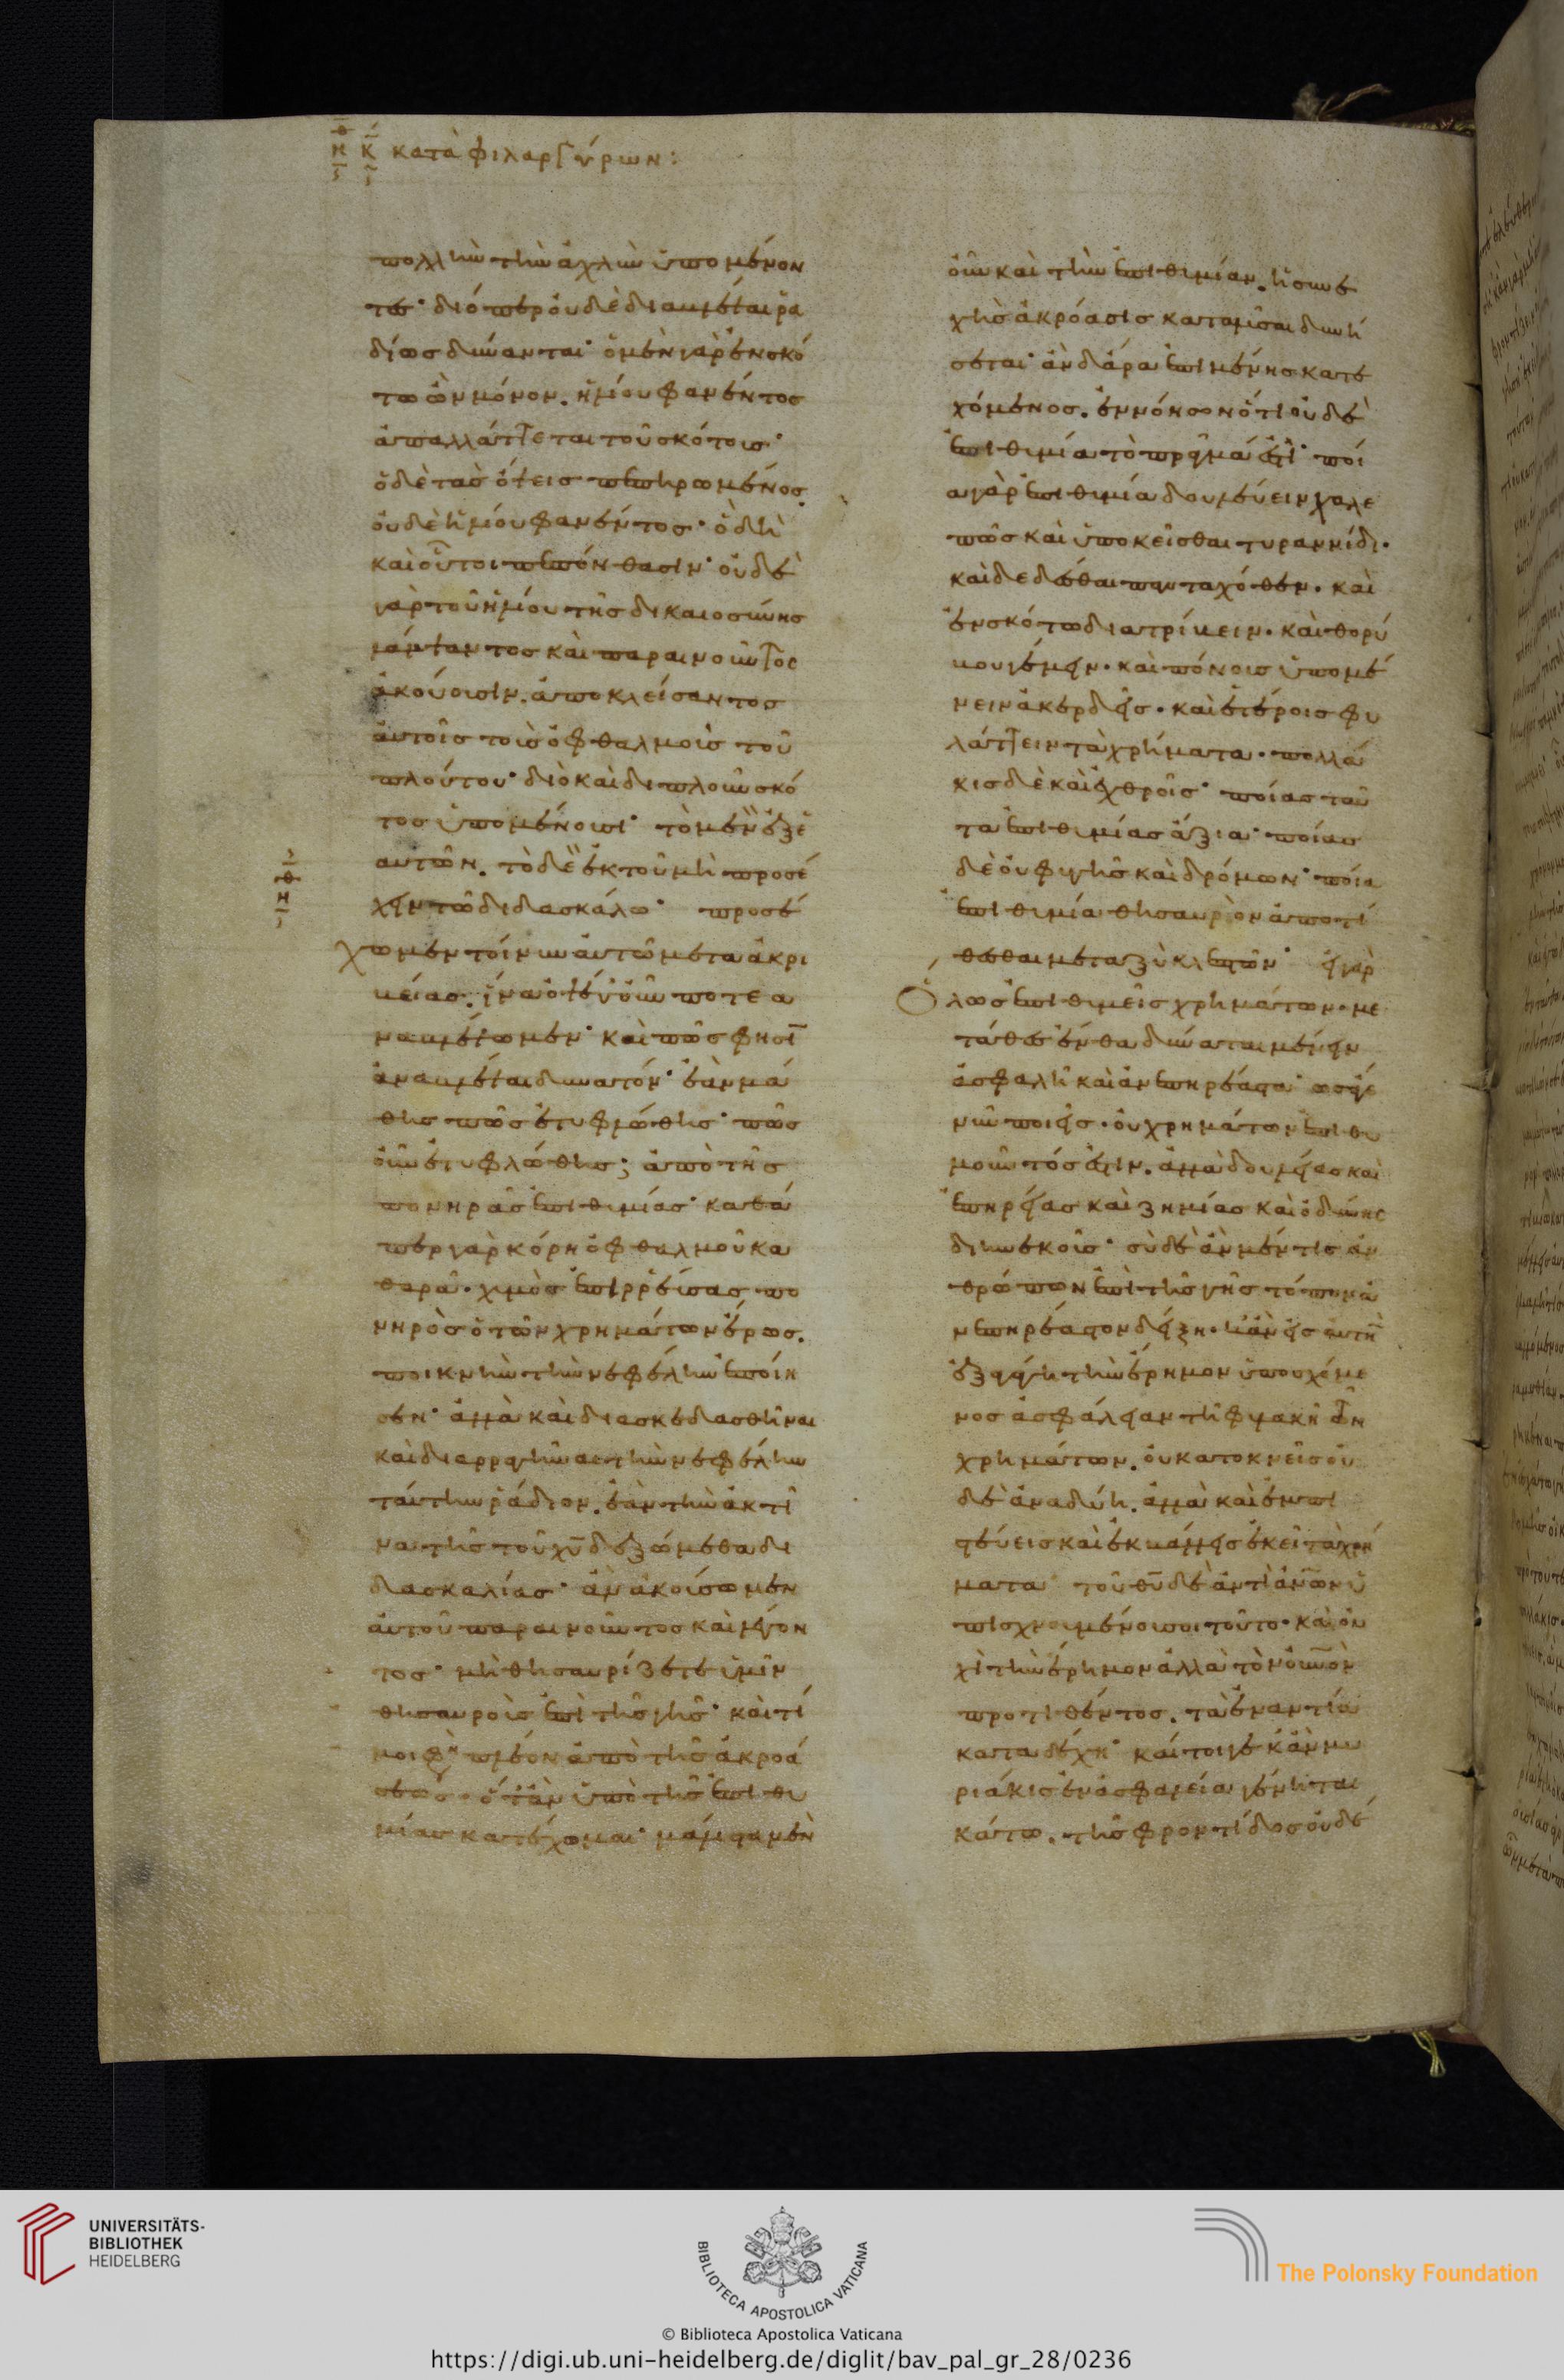 κατὰ φιλαργύρων:
πολλὴν τὴν ἀχλὺν ὑπομένον
τες· διόπερ οὐδὲ διαβλέψαι ῥα
δίως δύνανται· ὁ μὲν γὰρ ἐν σκό
τω ὢν μόνον. ἡλίου φανέντος
ἀπαλλάττεται τοῦ σκότους·
ὁ δὲ τὰς ὄψεις πεπηρωμένος.
οὐδὲ ἡλίου φανέντος· ὃ δὴ
καὶ οὗτοι πεπόνθασιν· οὐδὲ
γὰρ τοῦ ἡλίου τῆς δικαιοσύνης
λάμψαντος καὶ παραινοῦντος
ἀκούουσιν. ἀποκλείσαντος
αὐτοῖς τοὺς ὀφθαλμοὺς τοῦ
πλούτου· διὸ καὶ διπλοῦν σκό
τος ὑπομένουσι· τὸ μὲν ἐξ ἑ
αυτῶν. τὸ δὲ ἐκ τοῦ μὴ προσέ
χειν τῶ διδασκάλω· προσέ
χωμεν τοίνυν αὐτῶ μετὰ ἀκρι
βείας. ἵνα ὀψὲ γοῦν ποτε α
ναβλέψωμεν· καὶ πῶς φησι
ἀναβλέψαι δυνατόν· ἐὰν μά
θης πῶς ἐτυφλώθης· πῶς
οὖν ἐτυφλώθης; ἀπὸ τῆς
πονηρᾶς ἐπιθυμίας· καθά
περ γὰρ κόρη ὀφθαλμοῦ κα
θαρᾶ. χυμὸς ἐπιρρεύσας πο
νηρὸς ὁ τῶν χρημάτων ἔρως.
πυκνὴν τὴν νεφέλην ἐποίη
σεν· ἀλλὰ καὶ διασκεδασθῆναι
καὶ διαρραγῆναι τὴν νεφέλην
ταύτην ῥάδιον. ἐὰν τὴν ἀκτῖ
να τῆς τοῦ χυ δεξώμεθα δι
δασκαλίας· ἂν ἀκούσωμεν
αὐτοῦ παραινοῦντος καὶ λέγον
τος· μὴ θησαυρίζετε ὑμῖν
θησαυροὺς ἐπὶ τῆς γῆς· καὶ τί
μοι φη πλέον ἀπὸ τῆς ἀκροά
σεως. ὅταν ὑπὸ τῆς ἐπιθυ
μίας κατέχωμαι· μάλιστα μὲν
οὖν καὶ τὴν ἐπιθυμίαν. ἡ συνε
χὴς ἀκρόασις καταλῦσαι δυνή
σεται· ἂν δὲ ἄρα ἐπιμένης κατε
χόμενος. ἐννόησον ὅτι οὐδὲ
ἐπιθυμία τὸ πρᾶγμά ἐστι· ποί
α γὰρ ἐπιθυμία δουλεύειν χαλε
πῶς καὶ ὑποκεῖσθαι τυραννίδι.
καὶ δεδέσθαι πανταχόθεν. καὶ
ἐν σκότω διατρίβειν. καὶ θορύ
βου γέμειν. καὶ πόνους ὑπομέ
νειν ἀκερδεῖς. καὶ ἑτέροις φυ
λάττειν τὰ χρήματα. πολλά
κις δὲ καὶ ἐχθροῖς· ποίας ταῦ
τα ἐπιθυμίας ἄξια· ποίας
δὲ οὐ φυγῆς καὶ δρόμων· ποία
ἐπιθυμία θησαυρὸν ἀποτί
θεσθαι μεταξὺ κλεπτῶν· εἰ γὰρ
ὅλως ἐπιθυμεῖς χρημάτων. με
τάθες ἔνθα δύναται μένειν
ἀσφαλῆ καὶ ἀνεπηρέαστα· ὡς ἅ γε
νῦν ποιεῖς. οὐ χρημάτων ἐπιθυ
μοῦντός ἐστιν. ἀλλὰ δουλείας καὶ
ἐπηρείας καὶ ζημίας καὶ ὀδύνης
διηνεκοῦς· σὺ δὲ ἂν μέν τις ἀν
θρώπων ἐπὶ τῆς γῆς τόπον ἀ
νεπηρέαστον δείξη. κἂν εἰς αὐτὴν
ἐξαγάγη τὴν ἔρημον ὑποσχόμε
νος ἀσφάλειαν τῆ φυλακῆ τῶν
χρημάτων. οὐκ ἀποκνεῖς οὐ
δὲ ἀναδύη. ἀλλὰ καὶ ἐμπι
στεύεις καὶ ἐκβάλλεις ἐκεῖ τὰ χρή
ματα· τοῦ θυ δὲ ἀντὶ ἀνων ὑ
πισχνουμένου σοι τοῦτο. καὶ οὐ
χὶ τὴν ἔρημον ἀλλὰ τὸν οὐνον
προτιθέντος. τὰ ἐναντία
καταδέχη· καίτοι γε κἂν μυ
ριάκις ἐν ἀσφαλεία γένηται
κάτω. τῆς φροντίδος οὐδέ
UNIVERSITÄTS-
BIBLIOTHEK
HEIDELBERG
BIBLIOTECA APOSTOLICA VATICANA
The Polonsky Foundation
© Biblioteca Apostolica Vaticana
https://digi.ub.uni-heidelberg.de/diglit/bav_pal_gr_28/0236